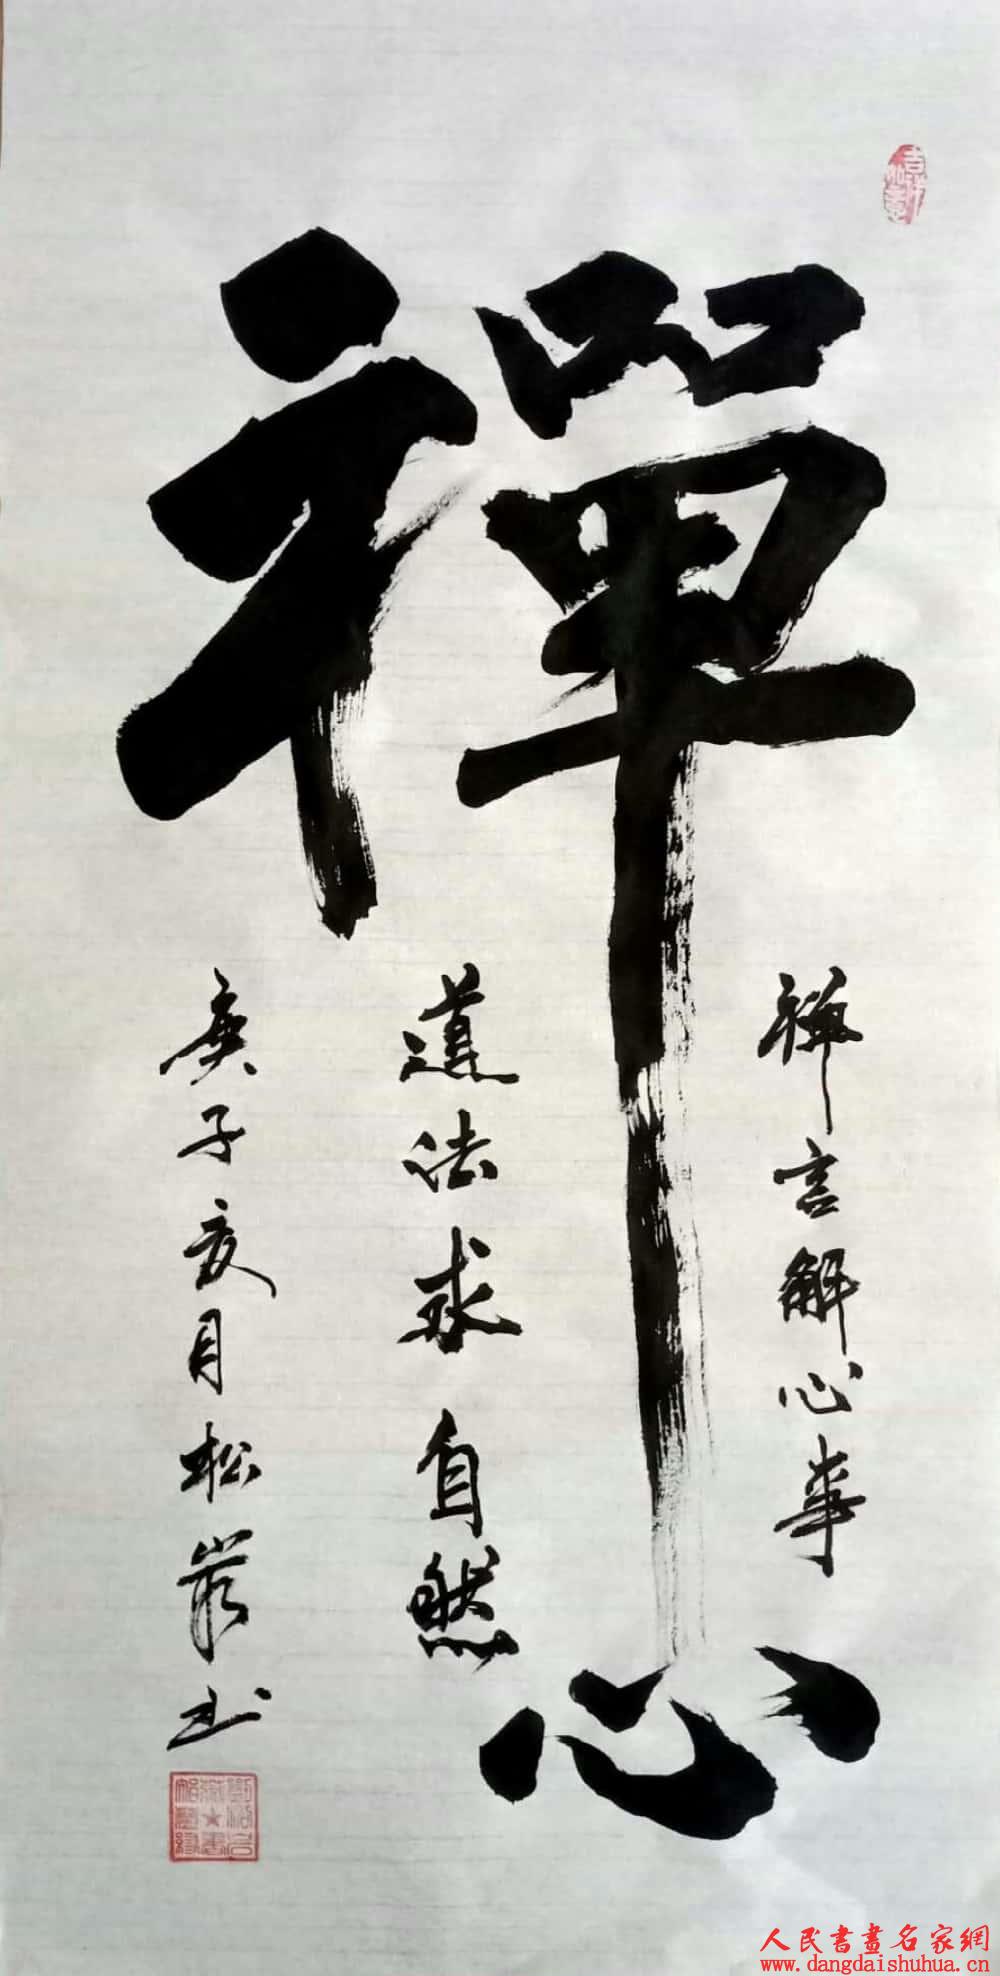 吉祥如意
禪心
禅言解心
道法求自然
庚子亥月松嚴书
人民書畫名家網
www.dangdaishuhua.cn